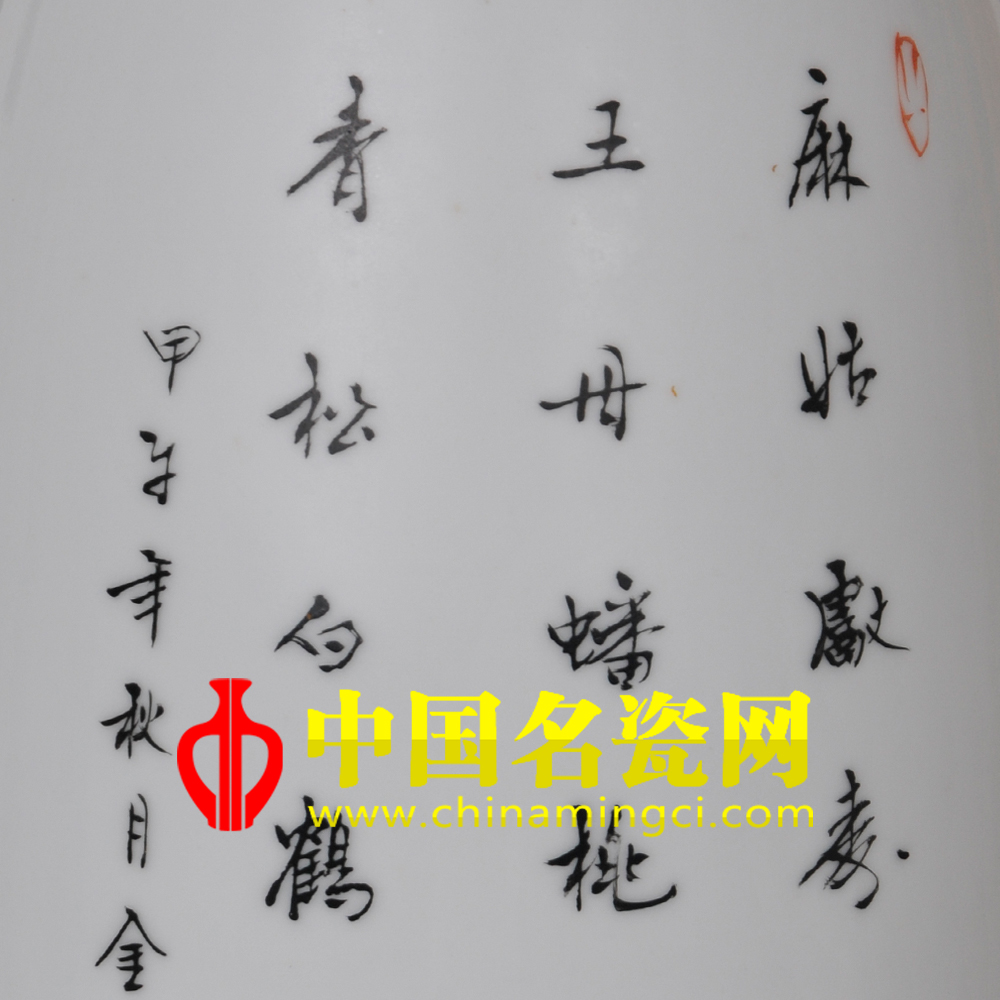 麻姑獻壽
王母蟠桃
青松白鶴
甲午年秋月全
中国名瓷网
www.chinamingci.com